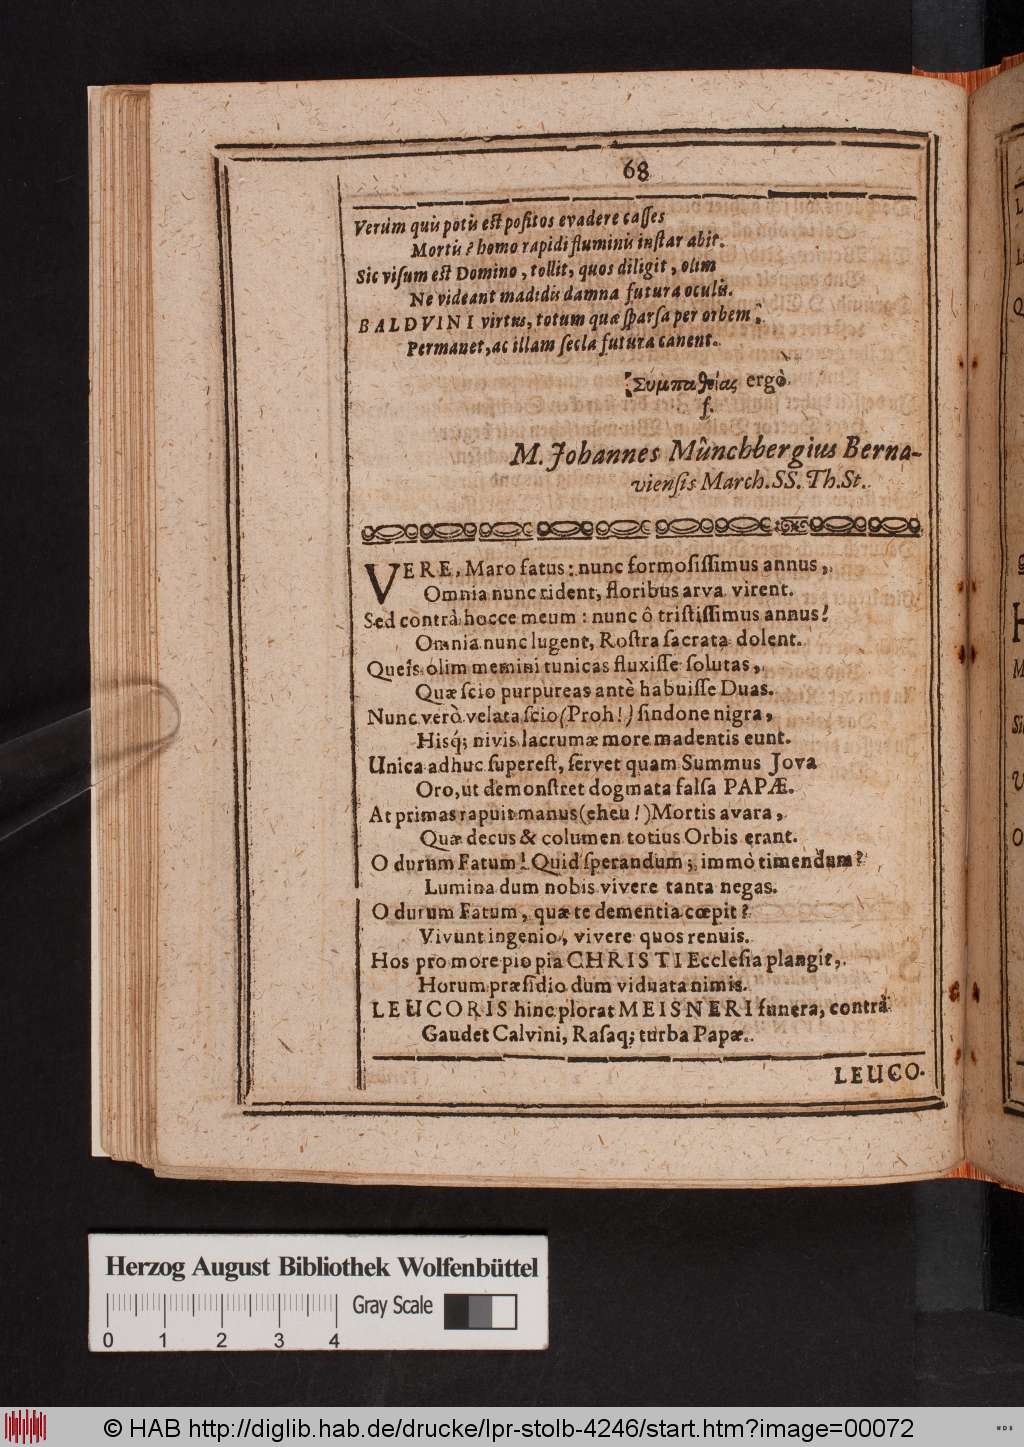 68
Verùm quis potis est positos evadere casses
Mortis? homo rapidi fluminis instar abit.
Sic visum est Domino, tollit, quos diligit, olim
Ne videant madidis damna futura oculis.
BALDVINI virtus, totum quæ sparsa per orbem,
Permanet, ac illam secla futura canent.
Συμπαθείας ergò
f.
M. Johannes Mûnchbergius Berna-
viensis March. SS. Th. St.
VERE, Maro fatus: nunc formosissimus annus,
Omnia nunc rident, floribus arva virent.
Sed contrà hocce meum: nunc ô tristissimus annus!
Omnia nunc lugent, Rostra sacrata dolent.
Queîs olim memini tunicas fluxisse solutas,
Quæ scio purpureas antè habuisse Duas.
Nunc verò velata scio (Proh!) sindone nigra,
Hisq; nivis lacrumæ more madentis eunt.
Unica adhuc superest, servet quam Summus Jova
Oro, ut demonstret dogmata falsa PAPÆ.
At primas rapuit manus (eheu!) Mortis avara,
Quæ decus & columen totius Orbis erant.
O durum Fatum! Quid sperandum; immò timendum?
Lumina dum nobis vivere tanta negas.
O durum Fatum, quæ te dementia cœpit?
Vivunt ingenio, vivere quos renuis.
Hos pro more pio pia CHRISTI Ecclesia plangit,
Horum præsidio dum viduata nimis.
LEUCORIS hinc plorat MEISNERI funera, contrà
Gaudet Calvini, Rasaq; turba Papæ.
LEUCO-
Herzog August Bibliothek Wolfenbüttel
0 1 2 3 4 Gray Scale
© HAB http://diglib.hab.de/drucke/lpr-stolb-4246/start.htm?image=00072